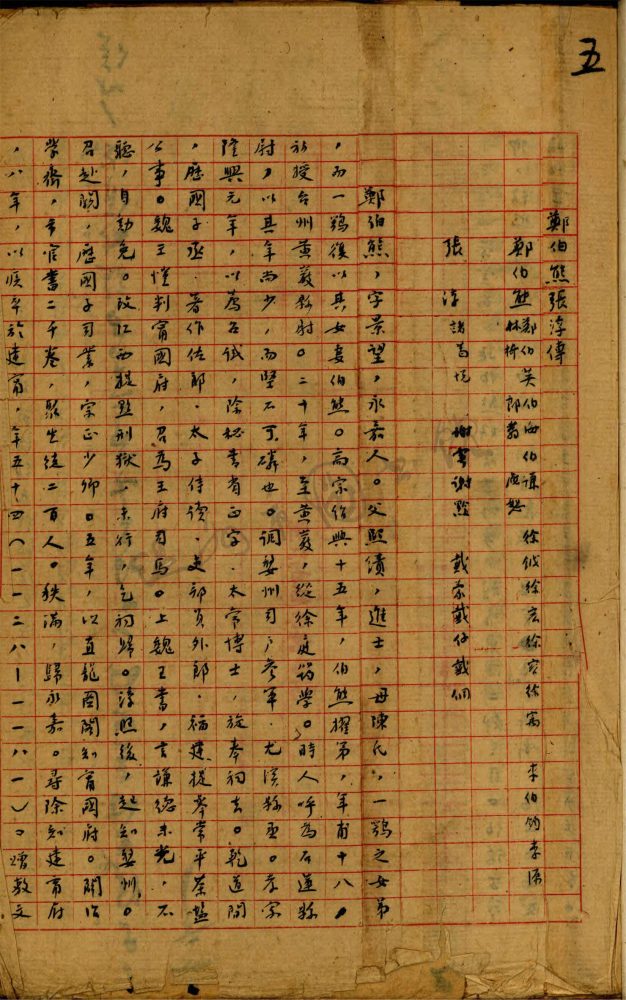 五
鄭伯熊張淳傳
鄭伯熊 鄭伯英 伯海 伯謙 林衿 郎蓊 應恕 徐宏 徐容 徐寓 李伯鈞 李源
張淳 諸葛悅 謝雩 謝黔 戴蒙 戴仔 戴侗
鄭伯熊,字景望,永嘉人。父熙績,進士,母陳氏,一鶚之女弟
,而一鶚復以其女妻伯熊。高宗紹興十五年,伯熊擢第,年甫十八。
初授台州黃巖縣尉。二十年,至黃巖,從徐庭筠學。時人呼為石蓮縣
尉,以其年尚少,而堅不可磷也。調婺州司戶參軍.尤溪縣丞。孝宗
隆興元年,以薦召試,除秘書省正字.太常博士,旋奉祠去。乾道間
,歷國子丞.著作佐郎.太子侍讀.吏部員外郎.福建提舉常平茶鹽
公事。魏王愷判甯國府,召為王府司馬。上魏王書,言謙德未光,不
聽,自劾免。改江西提點刑獄,未行,乞祠歸。淳熙後,起知婺州。
召赴闕,歷國子司業,宗正少卿。五年,以直龍圖閣知甯國府。閣治
學齋,市官書二千卷,聚生徒二百人。秩滿,歸永嘉。尋除知建甯府
,八年,以疾卒於建甯,年五十四(一一二八—一一八一)。增教文